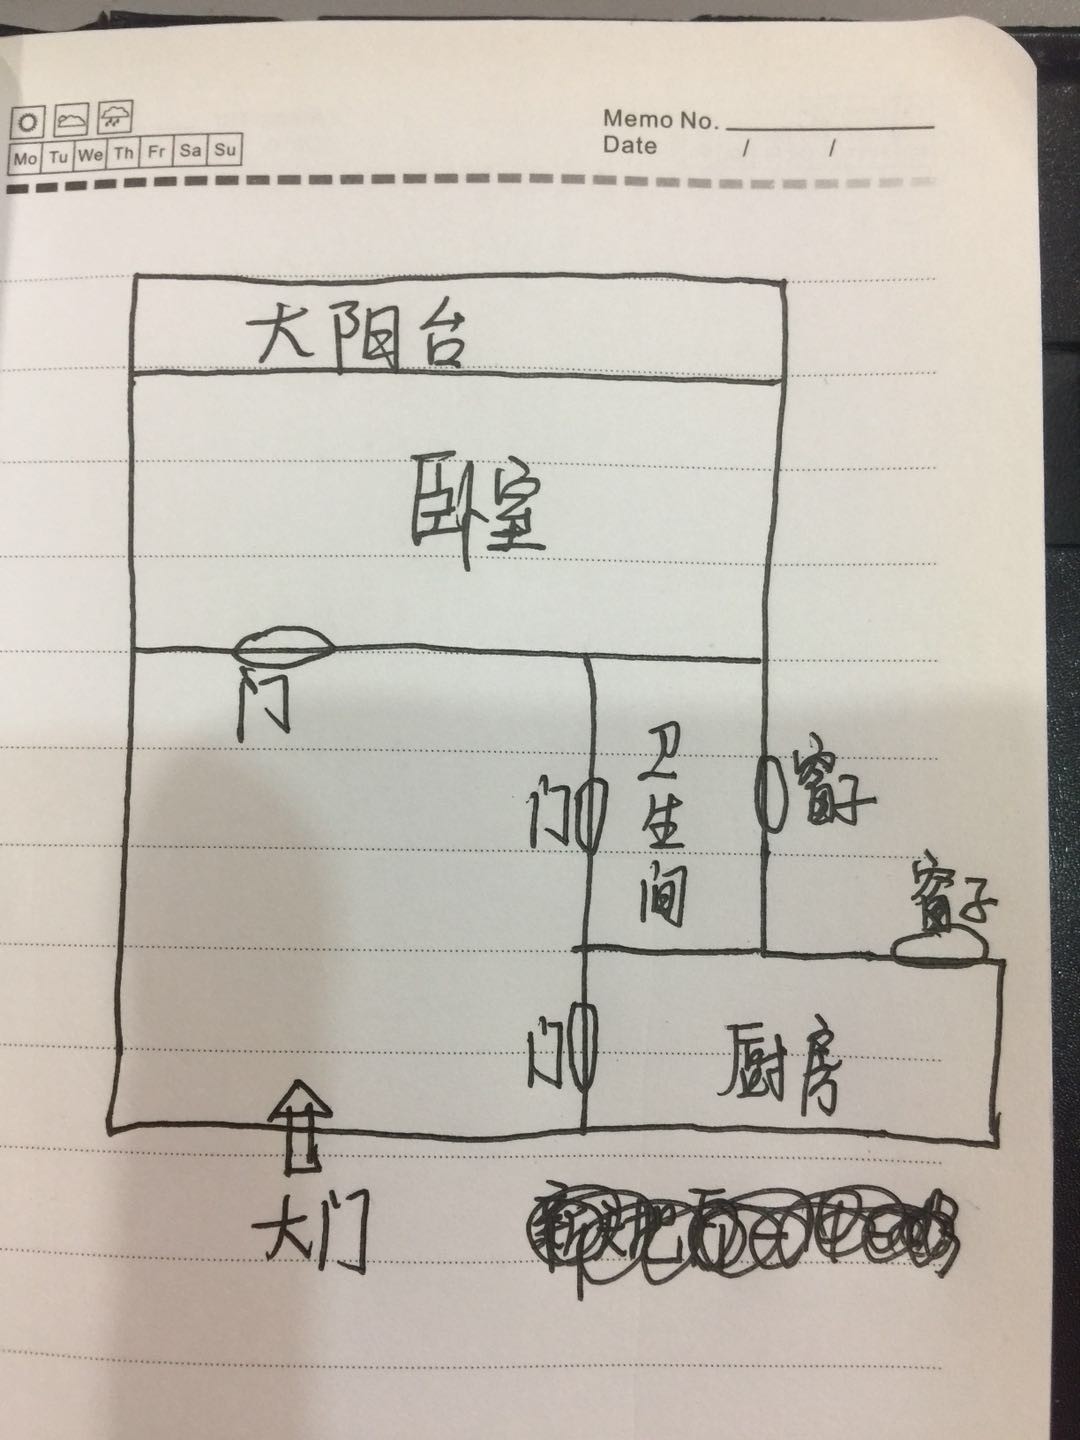 Memo No.
Mo Tu We Th Fr Sa Su
Date / /
大阳台
卧室
门
卫生间
门
窗子
窗子
门
厨房
大门